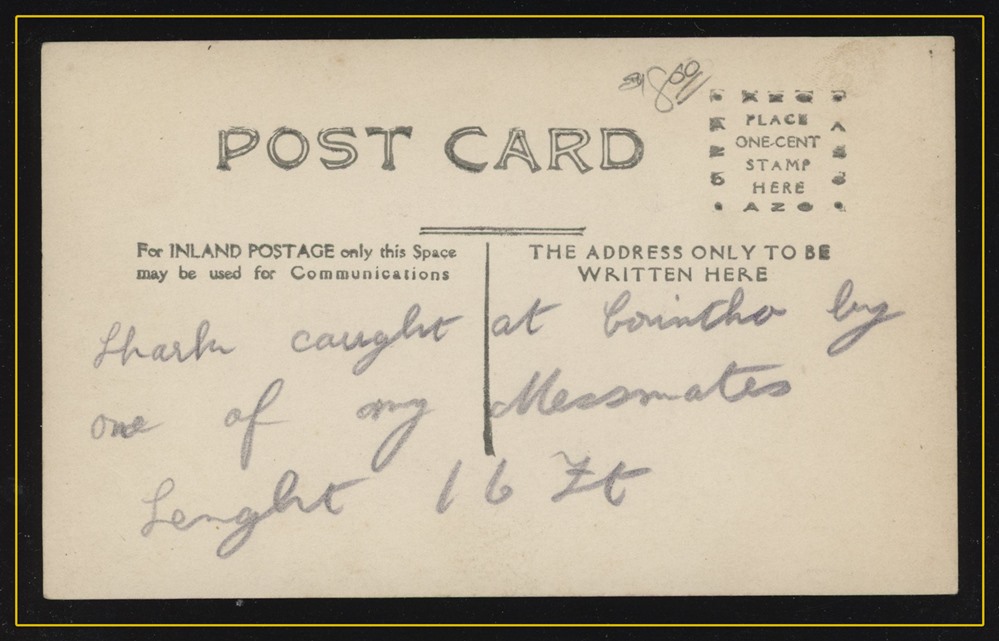 8.00
POST CARD
PLACE
ONE-CENT
STAMP
HERE
AZO
For INLAND POSTAGE only this Space
may be used for Communications
THE ADDRESS ONLY TO BE
WRITTEN HERE
Shark caught at Corintho by
one of my Messmates
Lenght 16 Ft